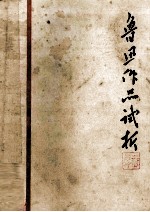 鲁迅作品试析